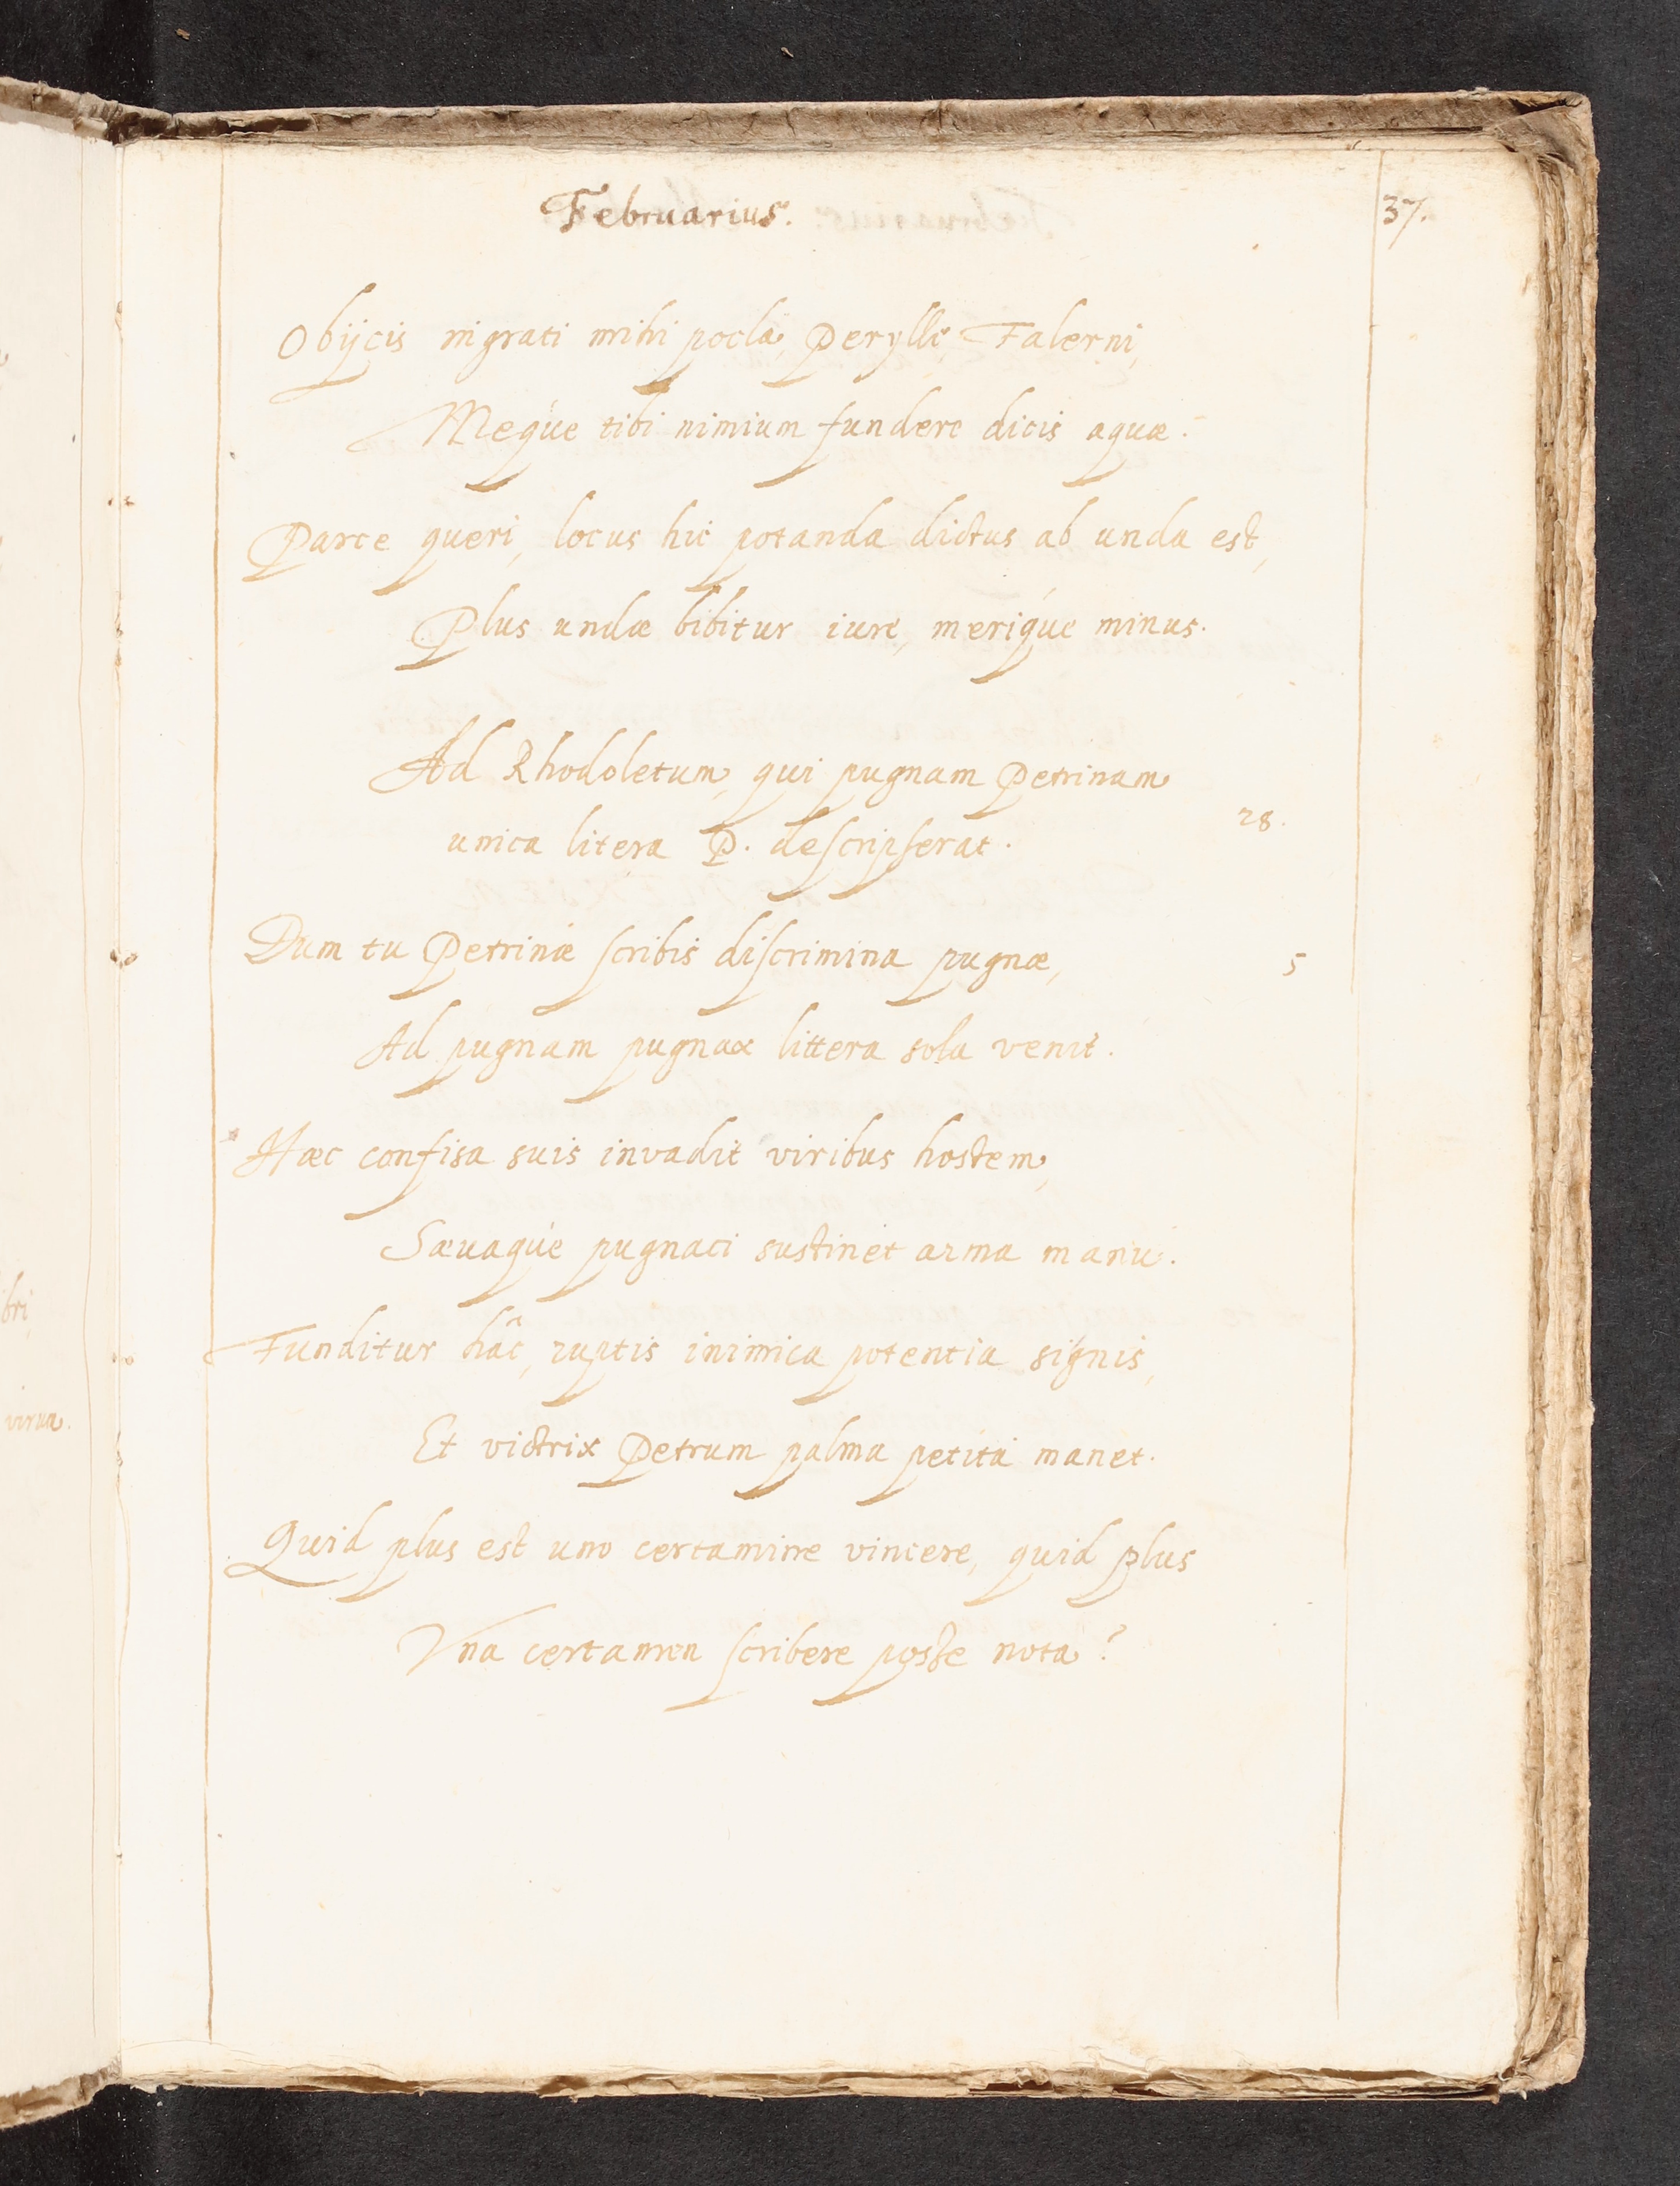 Februarius. 37.
Obijcis ingrati mihi pocla, Perylle, Falerni,
Meque tibi nimium fundere dicis aquæ.
Parce queri, locus hic potanda dictus ab unda est,
Plus undæ bibitur iure, merique minus.
Ad Rhodoletum, qui pugnam Petrinam
unica litera P. descripserat. 28.
Dum tu Petrinæ scribis discrimina pugnæ, 5
Ad pugnam pugnax littera sola venit.
Hæc confisa suis invadit viribus hostem,
Sæuaque pugnaci sustinet arma manu.
Funditur hâc, ruptis inimica potentia signis,
Et victrix Petrum palma petita manet.
Quid plus est uno certamine vincere, quid plus
Vna certamen scribere posse nota?
bri,
virum.